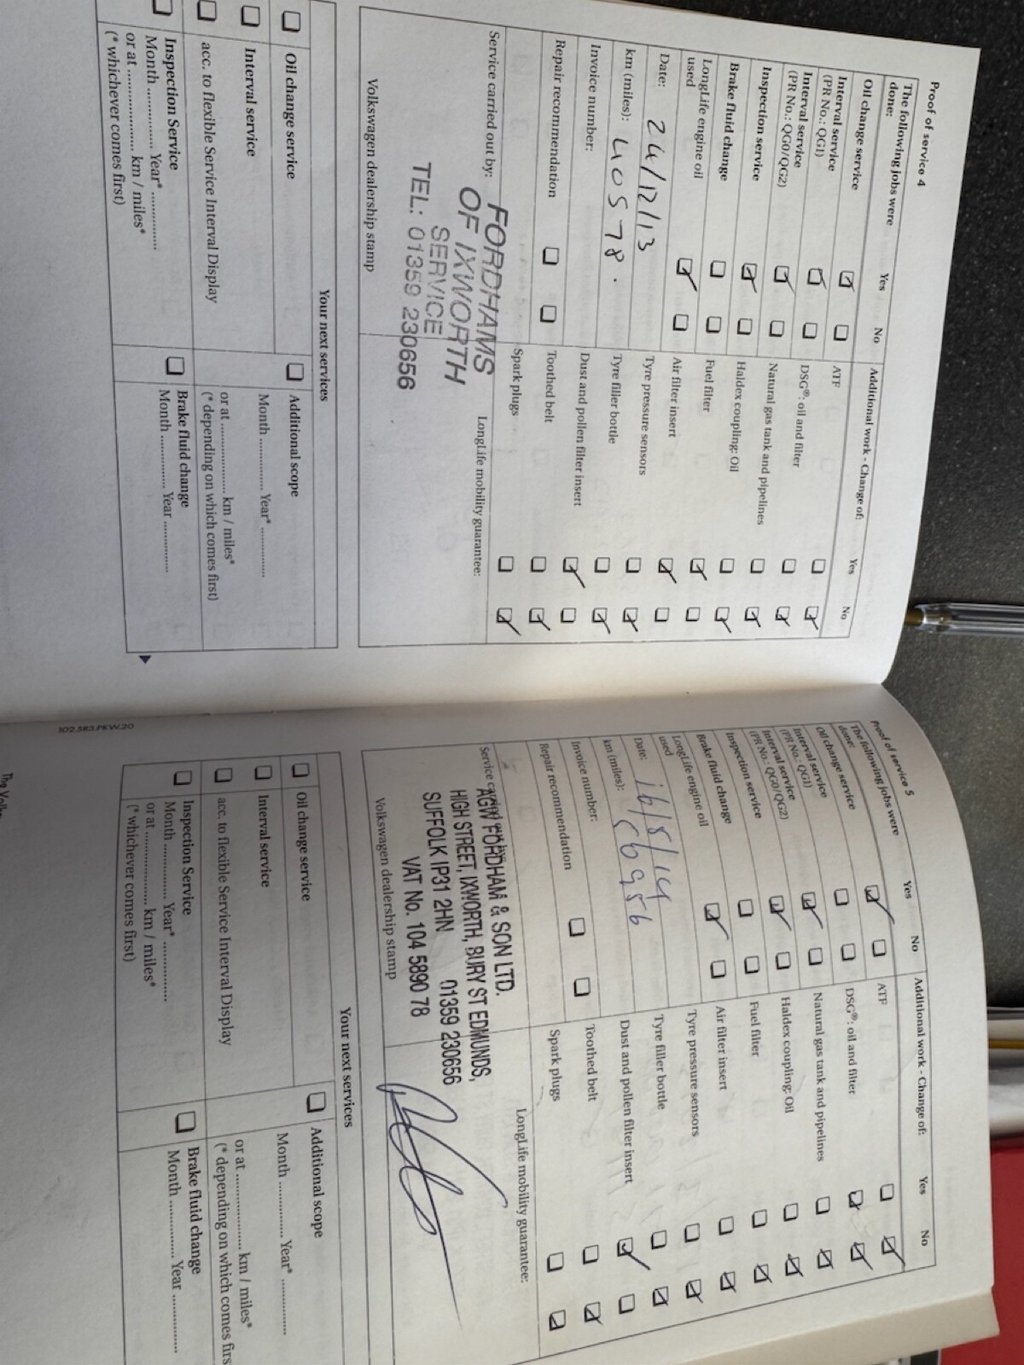 Proof of service 4
The following jobs were done: Yes No
Oil change service
Interval service
(PR No.: QG1)
Interval service
(PR No.: QG0/QG2)
Inspection service
Brake fluid change
LongLife engine oil
used
Date: 24/12/13
km (miles): 40578.
Invoice number:
Repair recommendation
Additional work - Change of: Yes No
ATF
DSG®: oil and filter
Natural gas tank and pipelines
Haldex coupling: Oil
Fuel filter
Air filter insert
Tyre pressure sensors
Tyre filler bottle
Dust and pollen filter insert
Toothed belt
Spark plugs
Service carried out by:
LongLife mobility guarantee:
FORDHAMS
OF IXWORTH
SERVICE
TEL: 01359 230656
Volkswagen dealership stamp
Your next services
Oil change service
Interval service
acc. to flexible Service Interval Display
Additional scope
Month Year*
or at km / miles*
(* depending on which comes first)
Inspection Service
Month Year*
or at km / miles*
(* whichever comes first)
Brake fluid change
Month Year
Proof of service 5
The following jobs were
done: Yes No
Oil change service
Interval service
(PR No.: QG1)
Interval service
(PR No.: QG0/QG2)
Inspection service
Brake fluid change
LongLife engine oil
used
Date: 16/5/14
km (miles): 56956
Invoice number:
Repair recommendation
Additional work - Change of: Yes No
ATF
DSG®: oil and filter
Natural gas tank and pipelines
Haldex coupling: Oil
Fuel filter
Air filter insert
Tyre pressure sensors
Tyre filler bottle
Dust and pollen filter insert
Toothed belt
Spark plugs
LongLife mobility guarantee:
AGW FORDHAM & SON LTD.
HIGH STREET, IXWORTH, BURY ST EDMUNDS,
SUFFOLK IP31 2HN 01359 230656
VAT No. 104 5890 78
Volkswagen dealership stamp
Your next services
Oil change service
Interval service
acc. to flexible Service Interval Display
Additional scope
Month Year*
or at km / miles*
(* depending on which comes firs
Inspection Service
Month Year*
or at km / miles*
(* whichever comes first)
Brake fluid change
Month Year
102.5R3.PKW.20